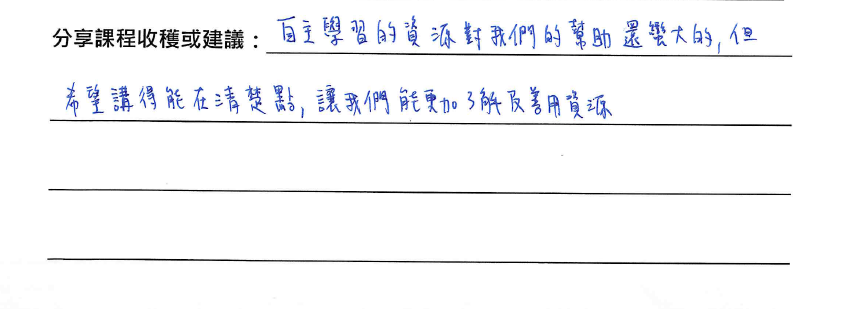 分享課程收穫或建議：自主學習的資源對我們的幫助還蠻大的，但
希望講得能在清楚點，讓我們能更加了解及善用資源